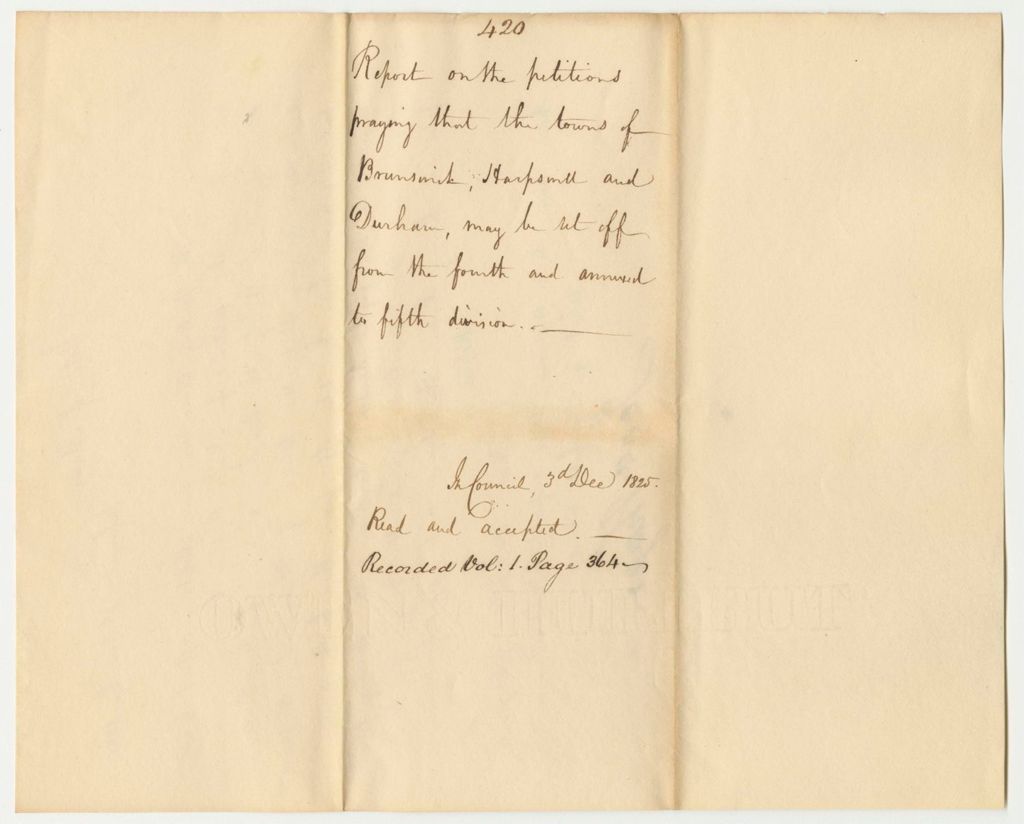 420
Report on the petitions
praying that the towns of
Brunswick, Harpswell and
Durham, may be set off
from the fourth and annexed
to fifth division. —
In Council, 3d Dec 1825.
Read and accepted. —
Recorded Vol: 1. Page 364